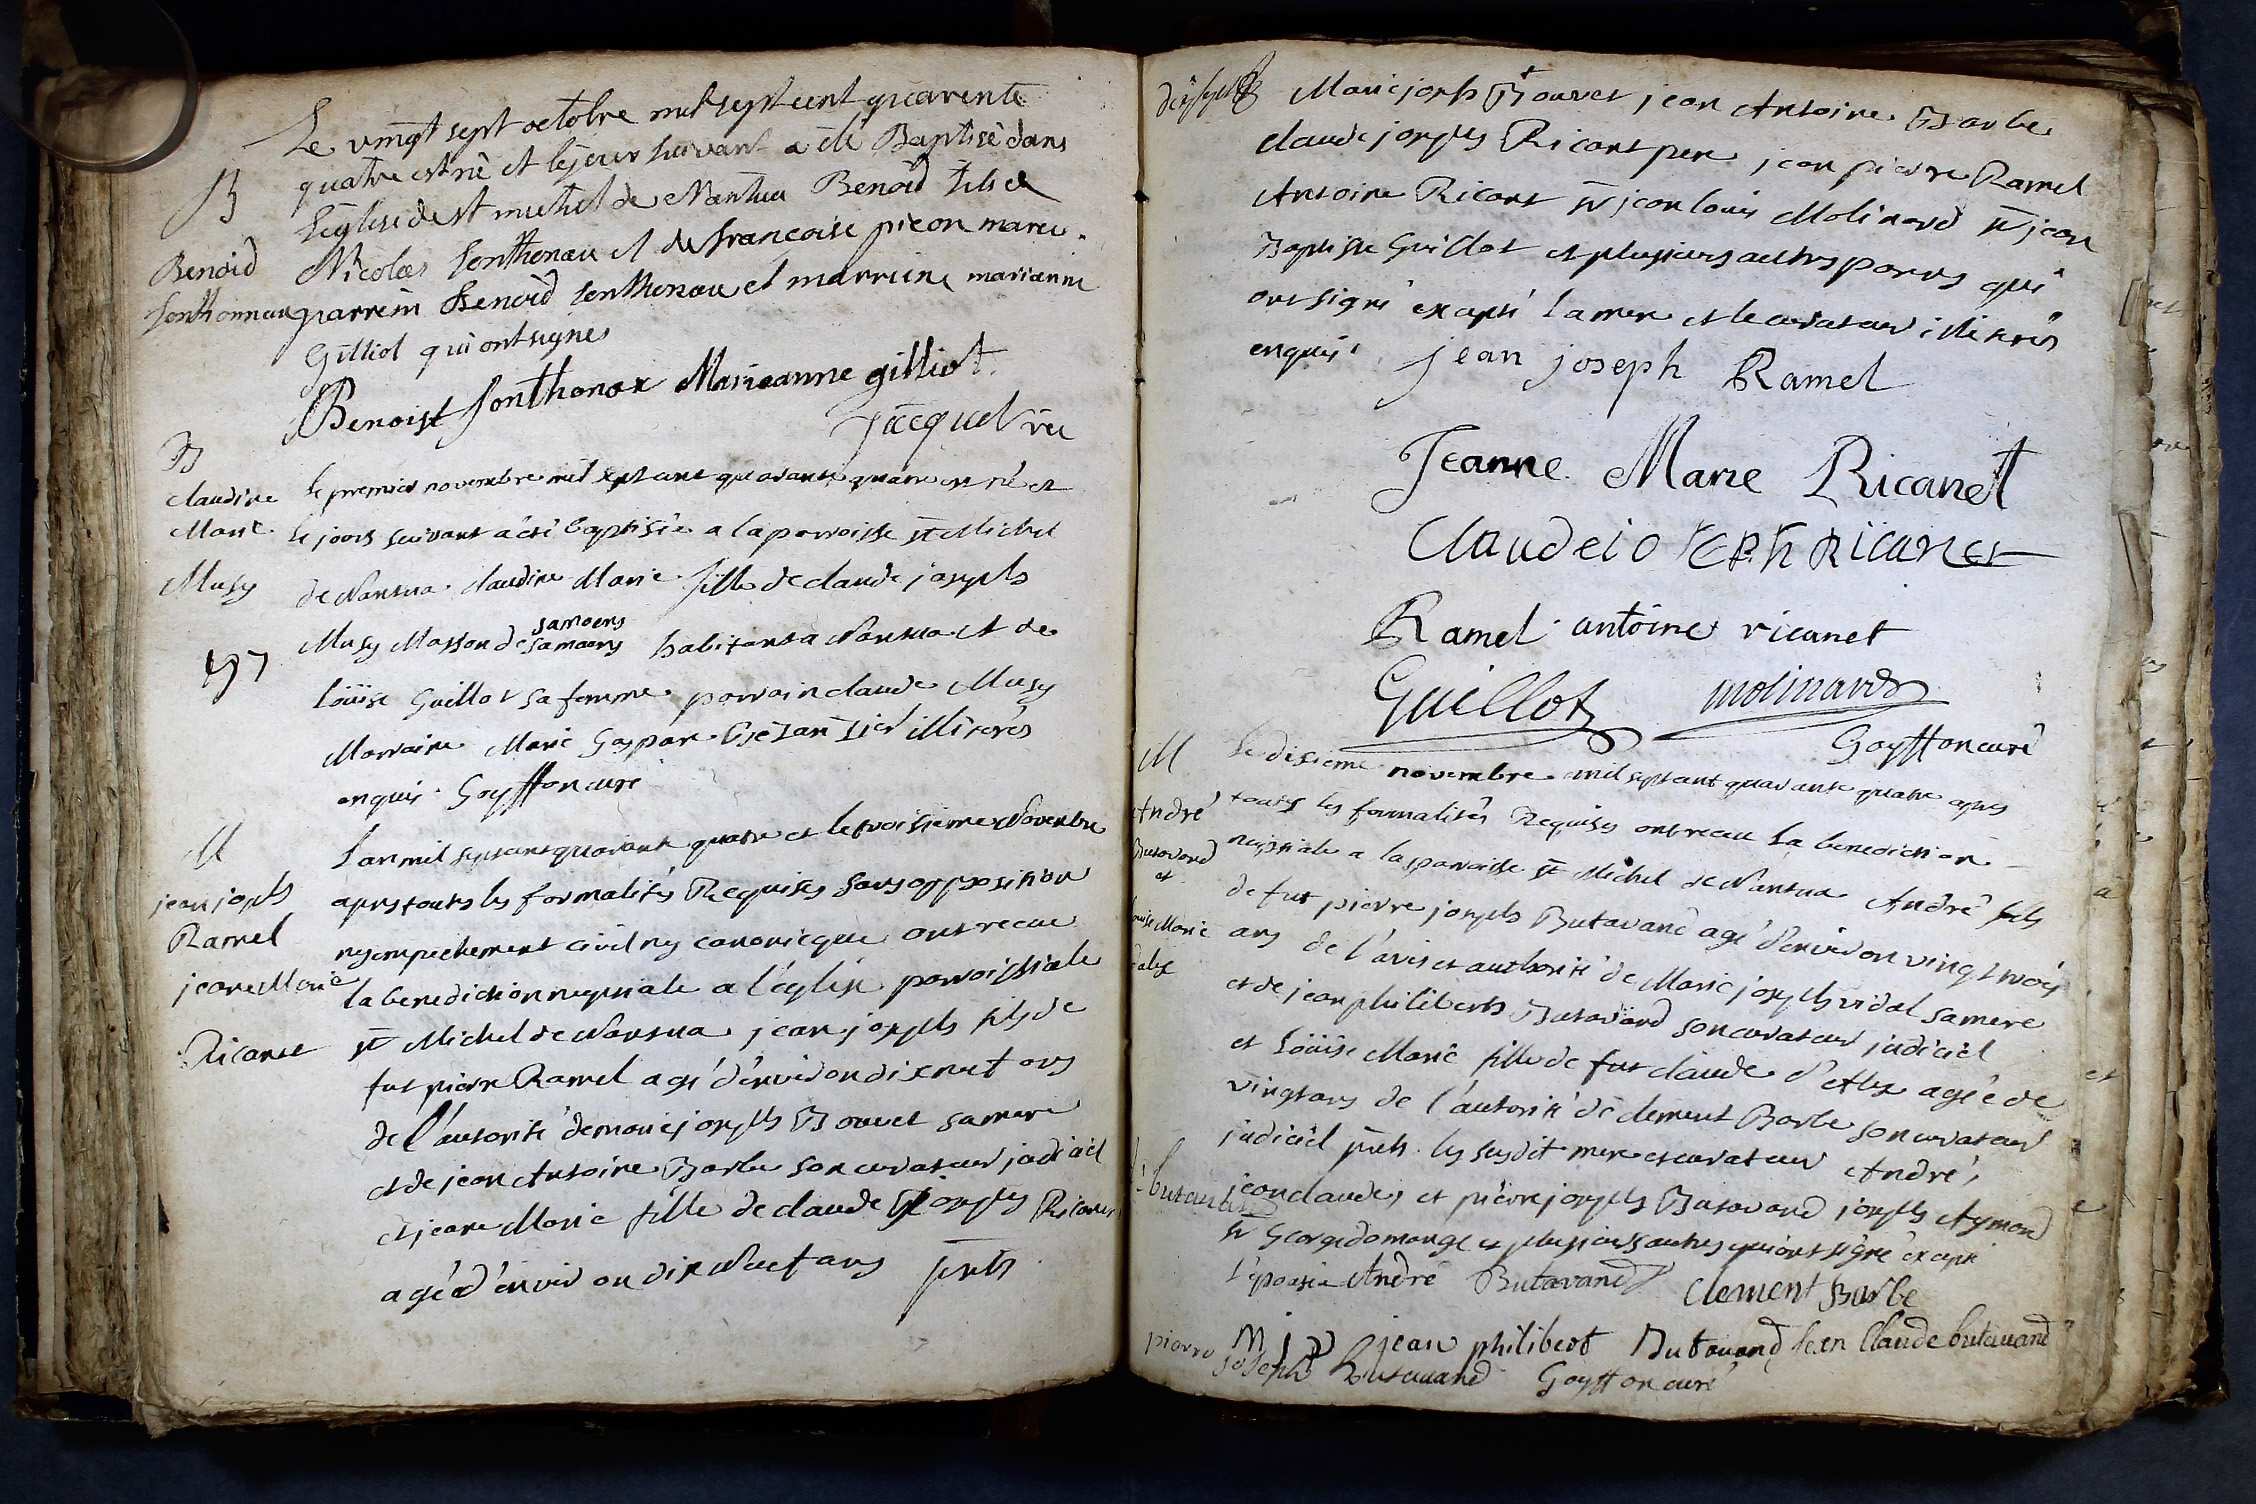 Le vingt sept octobre mil sept cent quarente
quatre est né et le jour suivant a été Baptisé dans
B
l'église de st michel de Nantua Benoid fils de
Benoid
Sonthonnax
Nicolas Sonthonax et de françoise picon mariés
parrein Benoid Sonthonax et marreine marianne
Gilliot qui ont signes
Benoist Sonthonax Marieanne gilliot.
Jacquet vic
B
Claudine
Marie
Musy
197
Le premier novembre mil sept cent quarante quatre est né et
le jours suivant a été baptisée a la parroisse st Michel
de Nantua claudine Marie fille de claude joseph
samoens
Musy Masson de samoens habitant a Nantua et de
Loüise Guillot sa femme parrain claude Musy
Marraine Marie Gaspar illiterés
enquis. Goyffon curé
M
jean joseph
Ramel
jeane Marie
Ricanet
L'an mil sept cent quarante quatre et le troisieme Novembre
apres toutes les formalités Requises sans opposition
ny empechement civil ny canonicque ont receu
la benediction nuptiale a l'église parroissiale
st Michel de Nantua jean joseph fils de
fut pierre Ramel agé d'environ dix neuf ans
de l'autorité de marie joseph Bouvet sa mere
et de jean Antoine Barbe son curateur judiciel
et jeane Marie fille de claude joseph Ricanet
agée d'environ dix Neuf ans pnts
Marie joseph Bouvet jean Antoine Barbe
claude joseph Ricanet pere jean pierre Ramel
Antoine Ricanet sr jean louis Molinard sr jean
Baptiste Guillot et plusieurs autres parens qui
ont signé excepté la mere et le curateur illiterés
enquis. jean joseph Ramel
Jeanne Marie Ricanet
Claude ioseph Ricanet
Ramel antoine ricanet
Guillot molinard
Goyffon curé
M
André
Butavand
et
Louise Marie
d'alex
Le disieme novembre mil sept cent quarante quatre apres
toutes les formalités Requises ont receu la benediction
nuptiale a la parroisse st Michel de Nantua André fils
de fut pierre joseph Butavand agé d'environ vingt trois
ans de l'avis et authorité de Marie joseph vidal sa mere
et de jean philibert Butavand son curateur judiciel
et Loüise Marie fille de fut claude d'Alex agée de
vingt ans de l'autorité de clement Barbe son curateur
judiciel pnts les susdit mere et curateur André,
jean claude, et pierre joseph Butavand joseph Aymard
sr George domange et plusieurs autres qui ont signé excepté
L'epouse André Butavand Clement Barbe
M j v jean philibert Butavand Jean Claude butavand
pierre joseph Butavand Goyffon curé